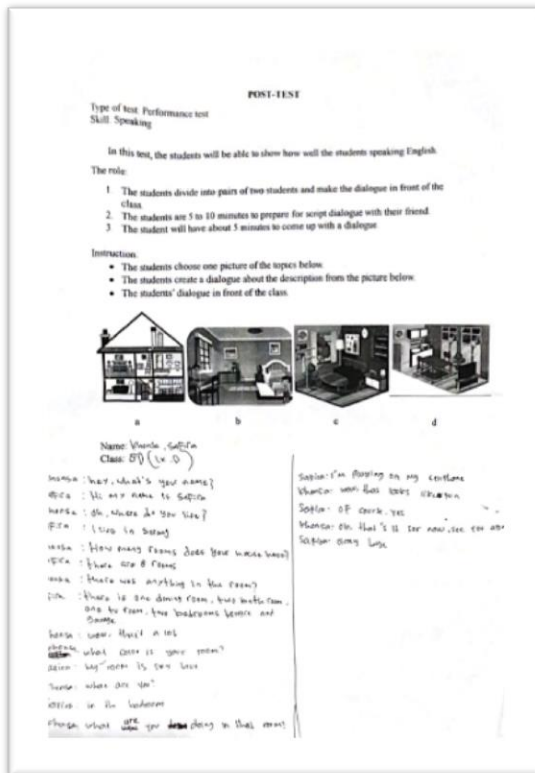 POST-TEST
Type of test. Performance test
Skill. Speaking
In this test, the students will be able to show how well the students speaking English.
The role:
1. The students divide into pairs of two students and make the dialogue in front of the
class.
2. The students are 5 to 10 minutes to prepare for script dialogue with their friend.
3. The student will have about 5 minutes to come up with a dialogue.
Instruction.
• The students choose one picture of the topics below.
• The students create a dialogue about the description from the picture below.
• The students' dialogue in front of the class.
a b c d
Name: Khansa, Safira
Class:
: hey, what's your name?
: Hi my name is Safira
: oh, where do you live?
: I live in
: How many rooms does your house have?
: there are 8 rooms
: there was anything in the room?
: there is one dining room, two bathroom,
one room, two bedrooms and
: wow, that's a lot
what is your room?
: My room is
: where are you?
: in bedroom
what are you doing in that room?
I'm playing on my
: wow that looks
: of , yes
: oh that's it for now, see you